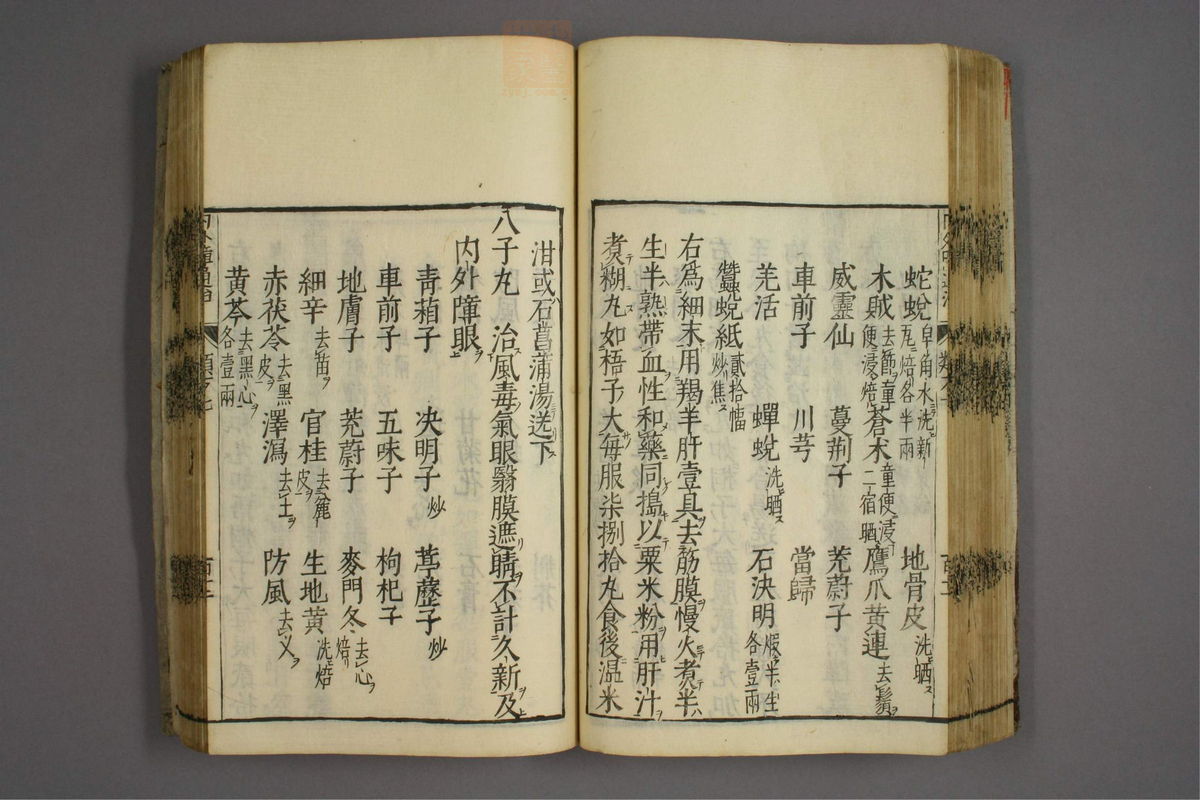 蛇蛻皂角水洗新瓦焙各半兩 地骨皮洗晒
木賊去節童便浸焙 蒼术童便浸二宿晒 鷹爪黄連去鬚
威靈仙 蔓荆子 茺蔚子
車前子 川芎 當歸
羌活 蟬蛻洗晒 石决明煅半生半各壹兩
蠶蛻紙貳拾幅炒焦
右為細末用羯羊肝壹具去筋膜慢火煮半
生半熟帶血性和藥同搗以粟米粉用肝汁
煮糊丸如梧子大每服柒捌拾丸食後温米
泔或石菖蒲湯送下
八子丸 治風毒氣眼翳膜遮睛不計久新及
内外障眼
青葙子 决明子炒 葶藶子炒
車前子 五味子 枸杞子
地膚子 茺蔚子 麥門冬去心焙
細辛去苗 官桂去麄皮 生地黄洗焙
赤茯苓去黑皮 澤瀉去土 防風去义
黄芩去黑心各壹兩